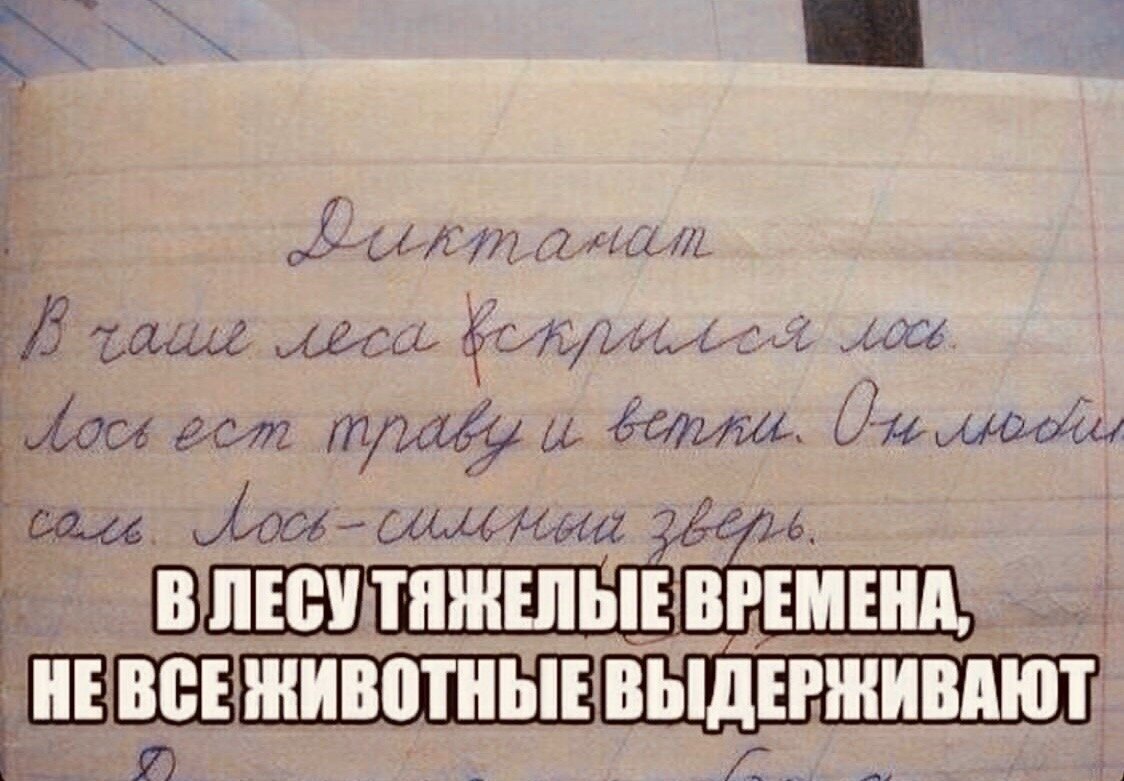 Диктанат
В чаше леса вскрылся лось.
Лось ест траву и ветки. Он любит
соль. Лось - сильный зверь.
В ЛЕСУ ТЯЖЕЛЫЕ ВРЕМЕНА,
НЕ ВСЕ ЖИВОТНЫЕ ВЫДЕРЖИВАЮТ